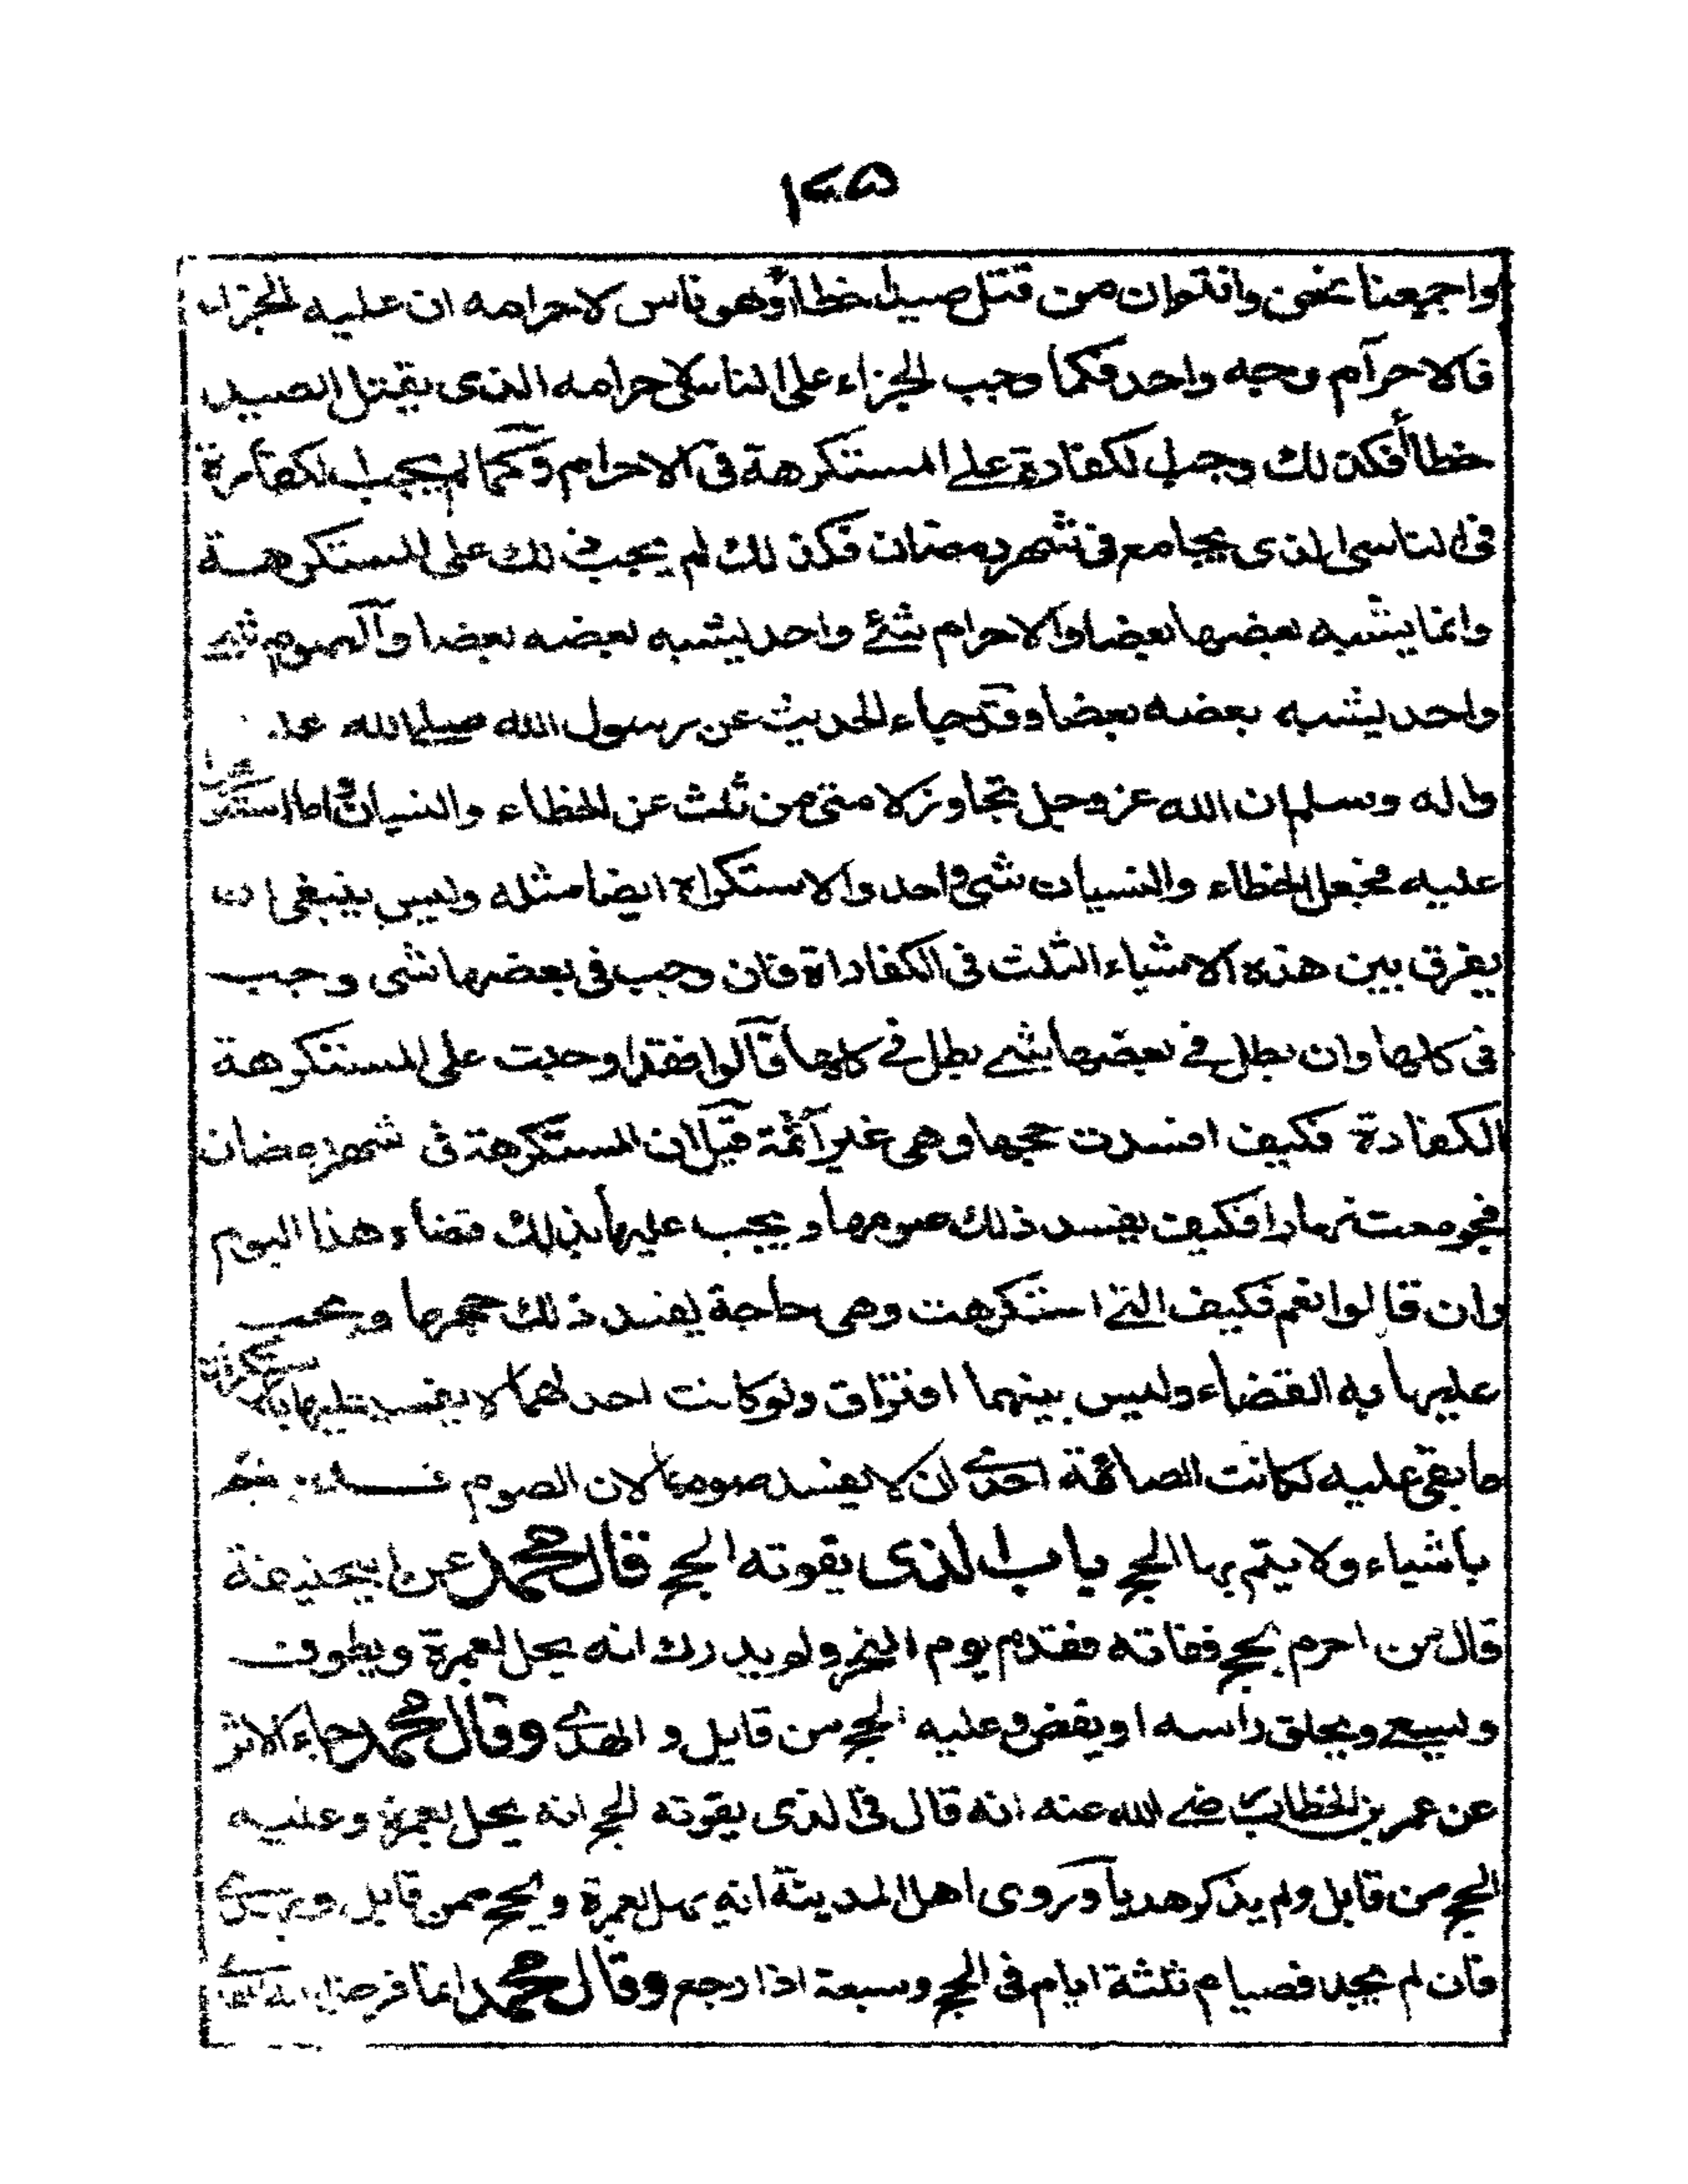 ١٢٥
واجمعنا نحن وانتم ان من قتل صيدا خطأ وهو ناس لاحرامه ان عليه الجزاء
فالاحرام وجه واحد فكما وجب الجزاء على الناسي لاحرامه الذى يقتل الصيد
خطأ فكذلك وجب الكفارة على المستكرهة فى الاحرام وكما لم يجب الكفارة
فى الناسى الذى يجامع فى شهر رمضان فكذلك لم يجب ذلك على المستكرهة
وانما يشبه بعضها بعضا والاحرام شئ واحد يشبه بعضه بعضا والصوم شئ
واحد يشبه بعضه بعضا وقد جاء الحديث عن رسول الله صلى الله عليه
واله وسلم ان الله عز وجل تجاوز لامتى من ثلث عن الخطاء والنسيان وما استكرهوا
عليه فجعل الخطاء والنسيان شئ واحد والاستكراه ايضا مثله وليس ينبغى ان
يفرق بين هذه الاشياء الثلث فى الكفاراة فان وجب فى بعضها شى وجب
فى كلها وان بطل فى بعضها شئ بطل فى كلها قالوا فقد اوجبت على المستكرهة
الكفارة فكيف افسدت حجها وهى غير آثمة قيل لان المستكرهة فى شهر رمضان
فجومعت نهارا فكيف يفسد ذلك صومها ويجب عليها بذلك قضاء هذا اليوم
وان قالوا نعم فكيف التى استكرهت وهى حاجة يفسد ذلك حجها ويجب
عليها به القضاء وليس بينهما افتراق ولو كانت احدلهما لا يفسد عليها باستكراه
ما بقى عليه لكانت الصائمة احرى ان لا يفسد صومها لان الصوم
باشياء ولا يتم بها الحج باب الذى يفوته الحج قال محمد عن ابيحنيفة
قال من احرم بحج ففاته فقدم يوم النحر ولم يدرك انه يحل بعمرة ويطوف
وليسعى ويحلق راسه او يقض وعليه الحج من قابل و الهدى وقال محمد جاء الاثر
عن عمر بن الخطاب رضى الله عنه انه قال فى الذى يفوته الحج انه يحل بعمرة وعليه
الحج من قابل ولم يذكر هديا وروى اهل المدينة انه يهل بعمرة ويحج من قابل ويهدى
فان لم يجد فصيام ثلثة ايام فى الحج وسبعة اذا رجع وقال محمد انما فرض الله الهدى